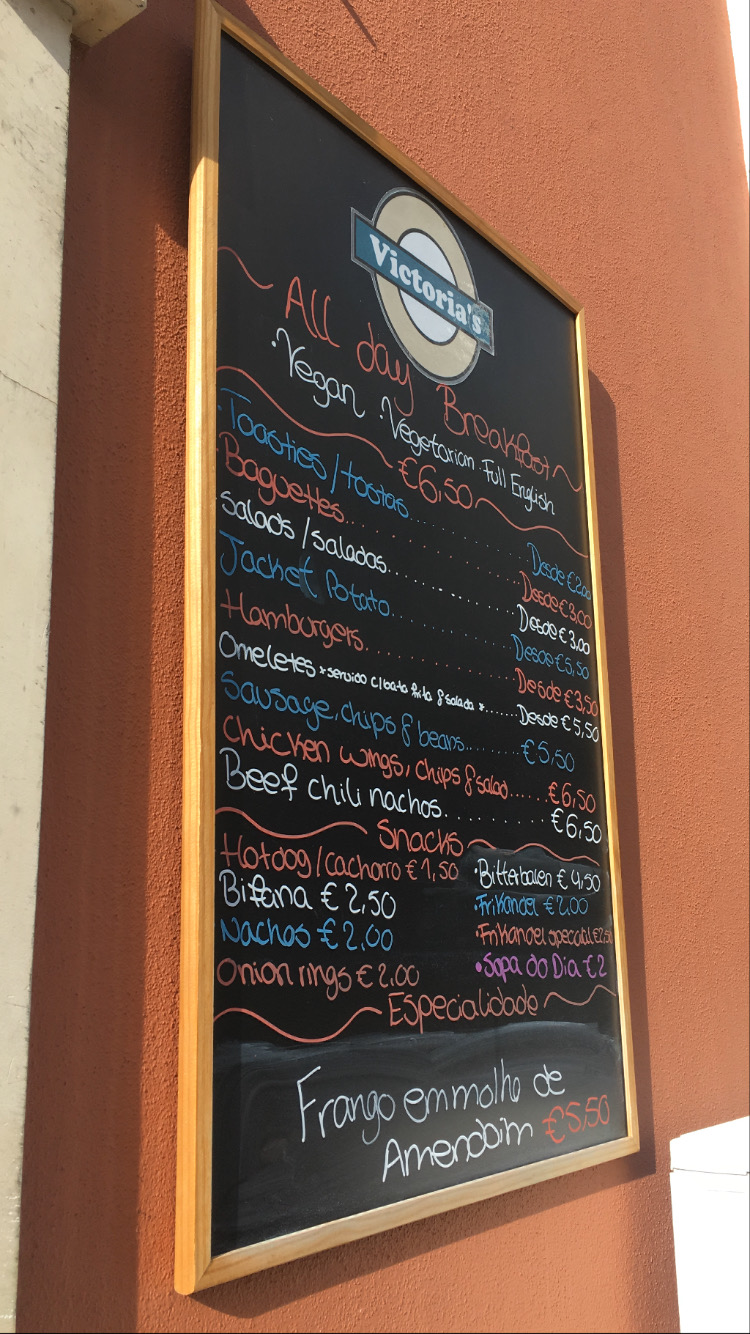 Victoria's
All day Breakfast
·Vegan ·Vegetarian ·Full English
€6,50
·Toasties/tostas........Desde €2,00
·Baguettes........Desde €3,00
Salads/saladas........Desde €3,00
Jacket Potato........Desde €5,50
Hamburgers........Desde €3,50
Omeletes *servido c/bata frita & salada *......Desde €5,50
Sausage, chips & beans........€5,50
Chicken wings, chips & salad......€6,50
Beef chili nachos........€6,50
Snacks
Hotdog/cachorro €1,50
Bifana €2,50
Nachos €2.00
Onion rings €2.00
·Bitterbalen €4,50
·Frikandel €2.00
·Frikandel special €2,50
·Sopa do Dia €2
Especialidade
Frango em molho de
Amendoim €5,50